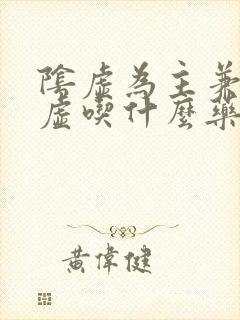 陰虛為主兼
虛喫什麼藥
黃偉健